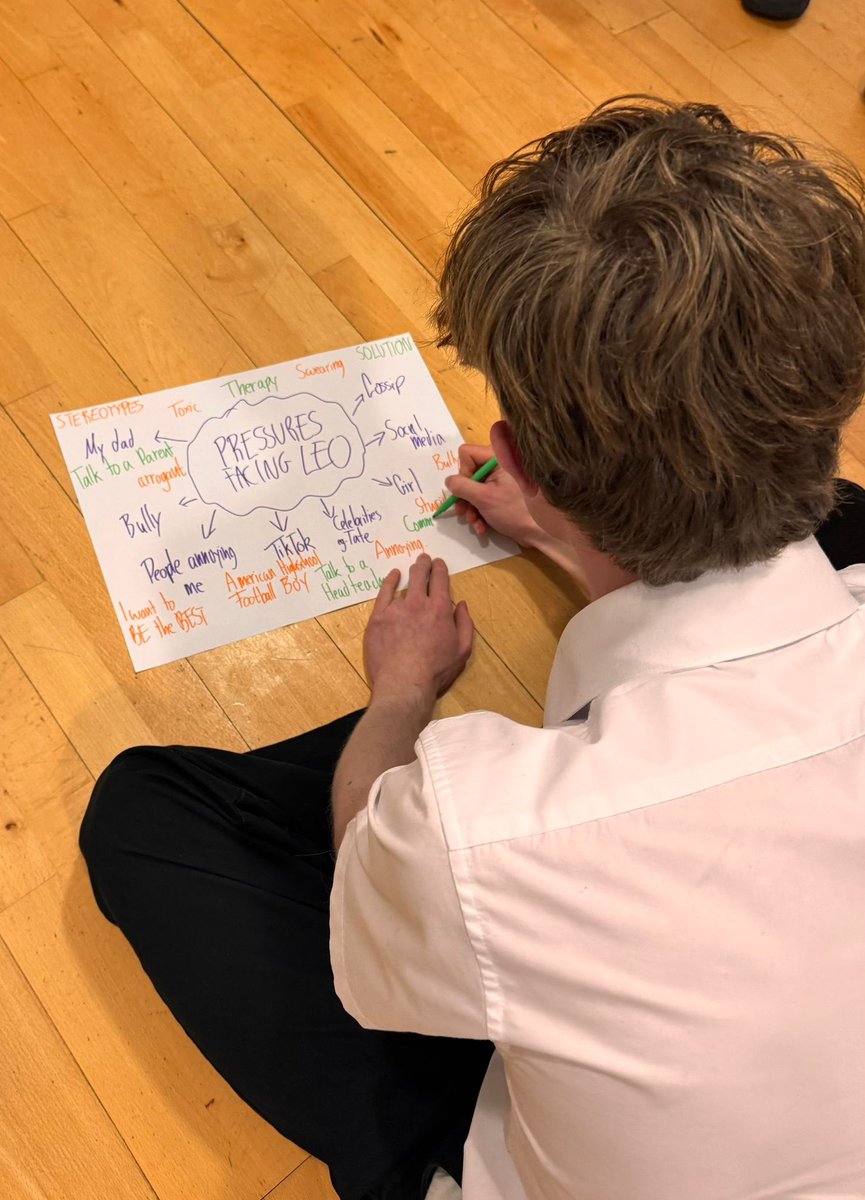 STEREOTYPES
Toxic
Therapy
Swearing
SOLUTION
PRESSURES
FACING LEO
Gossip
Social
media
Girl
Celebrities
eg Tate
TikTok
People annoying
me
Bully
My dad
Talk to a Parent
arrogant
I want to
BE the BEST
American Highschool
Football Boy
Talk to a
Annoying
Comm